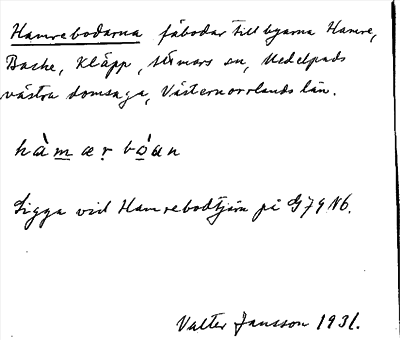 Hamrebodarna fäbodar till byarna Hamre,
Backe, Kläpp, Stivars sn, Medelpads
västra domsaga, Västernorrlands län.
hàmærbóan
Ligga vid Hamrebodtjärn på G79 N6.
Valter Jansson 1931.